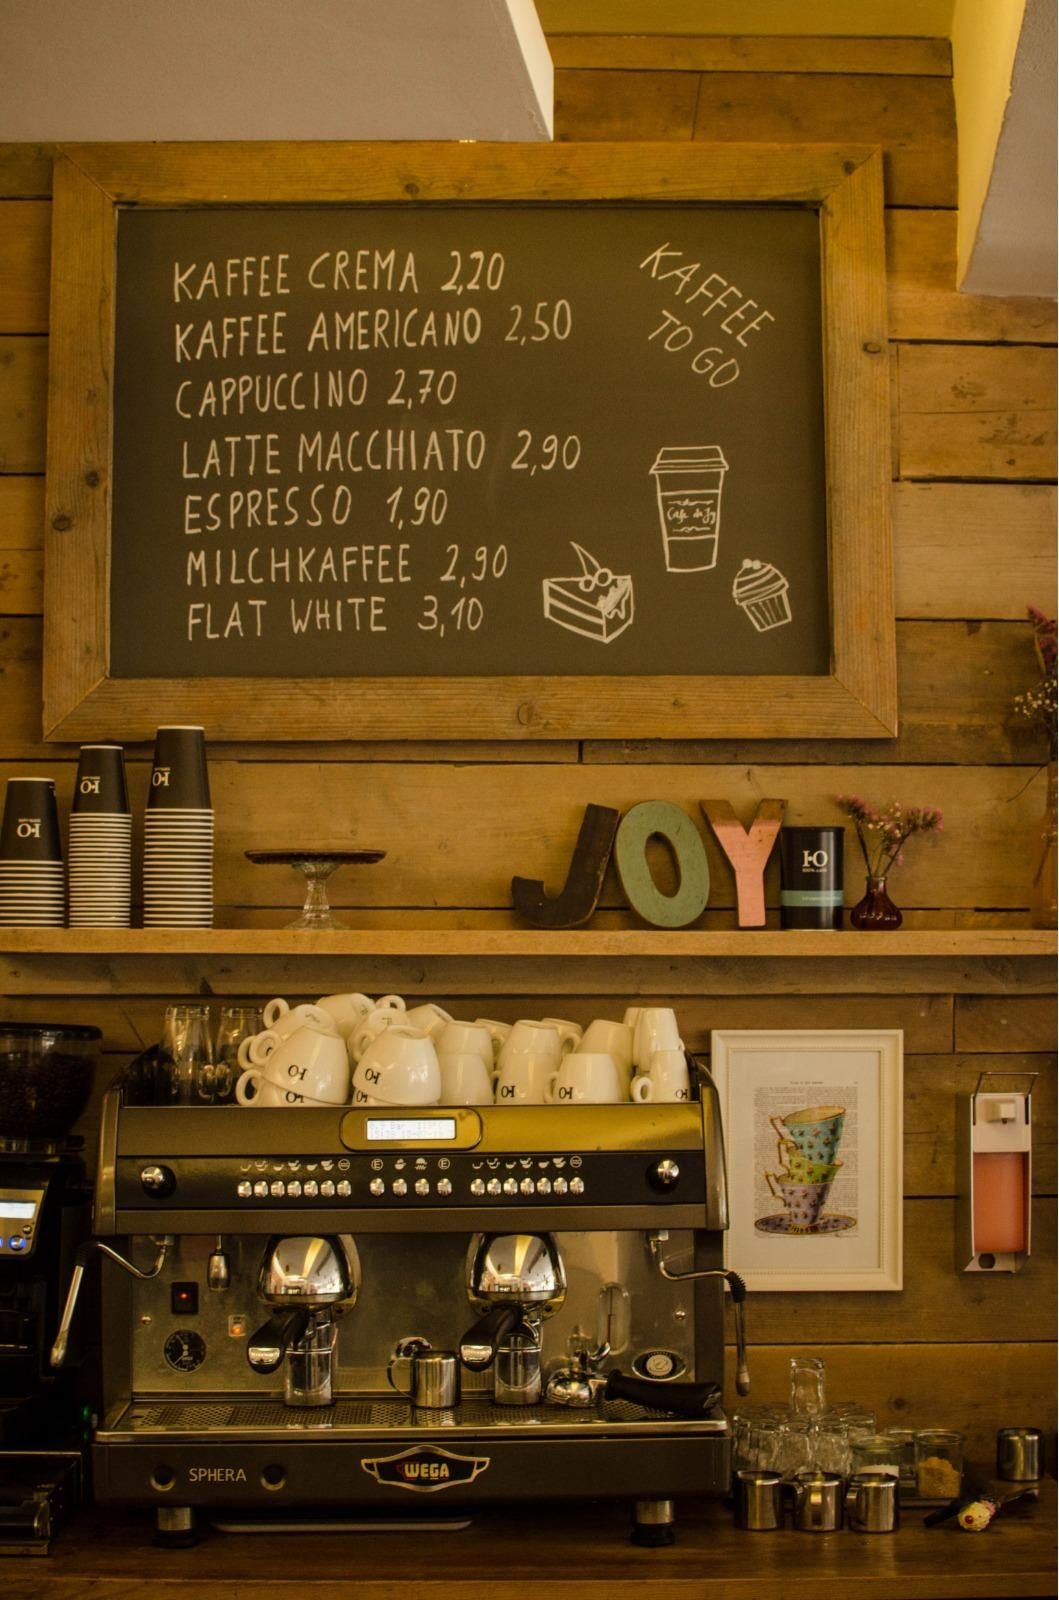 KAFFEE CREMA 2,20
KAFFEE AMERICANO 2,50
CAPPUCCINO 2,70
LATTE MACCHIATO 2,90
ESPRESSO 1,90
MILCHKAFFEE 2,90
FLAT WHITE 3,10
KAFFEE
TO GO
Cafe du Joy
JOY
SPHERA
WEGA